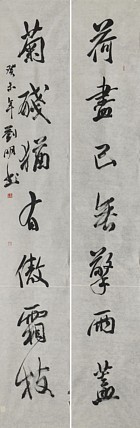 荷盡已無擎雨蓋
菊殘猶有傲霜枝
癸未年劉明